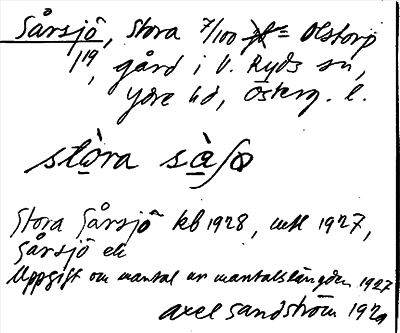 Sårsjö, Stora 7/100 = Olstorp
1/19, gård i V. Ryds sn,
Ydre hd, Österg. l.
stòra sàʃø
Stora Sårsjö kb 1928, mtl 1927,
Sårsjö ek
Uppgift om mantal ur mantalslängden 1927
Axel Sandström 1929